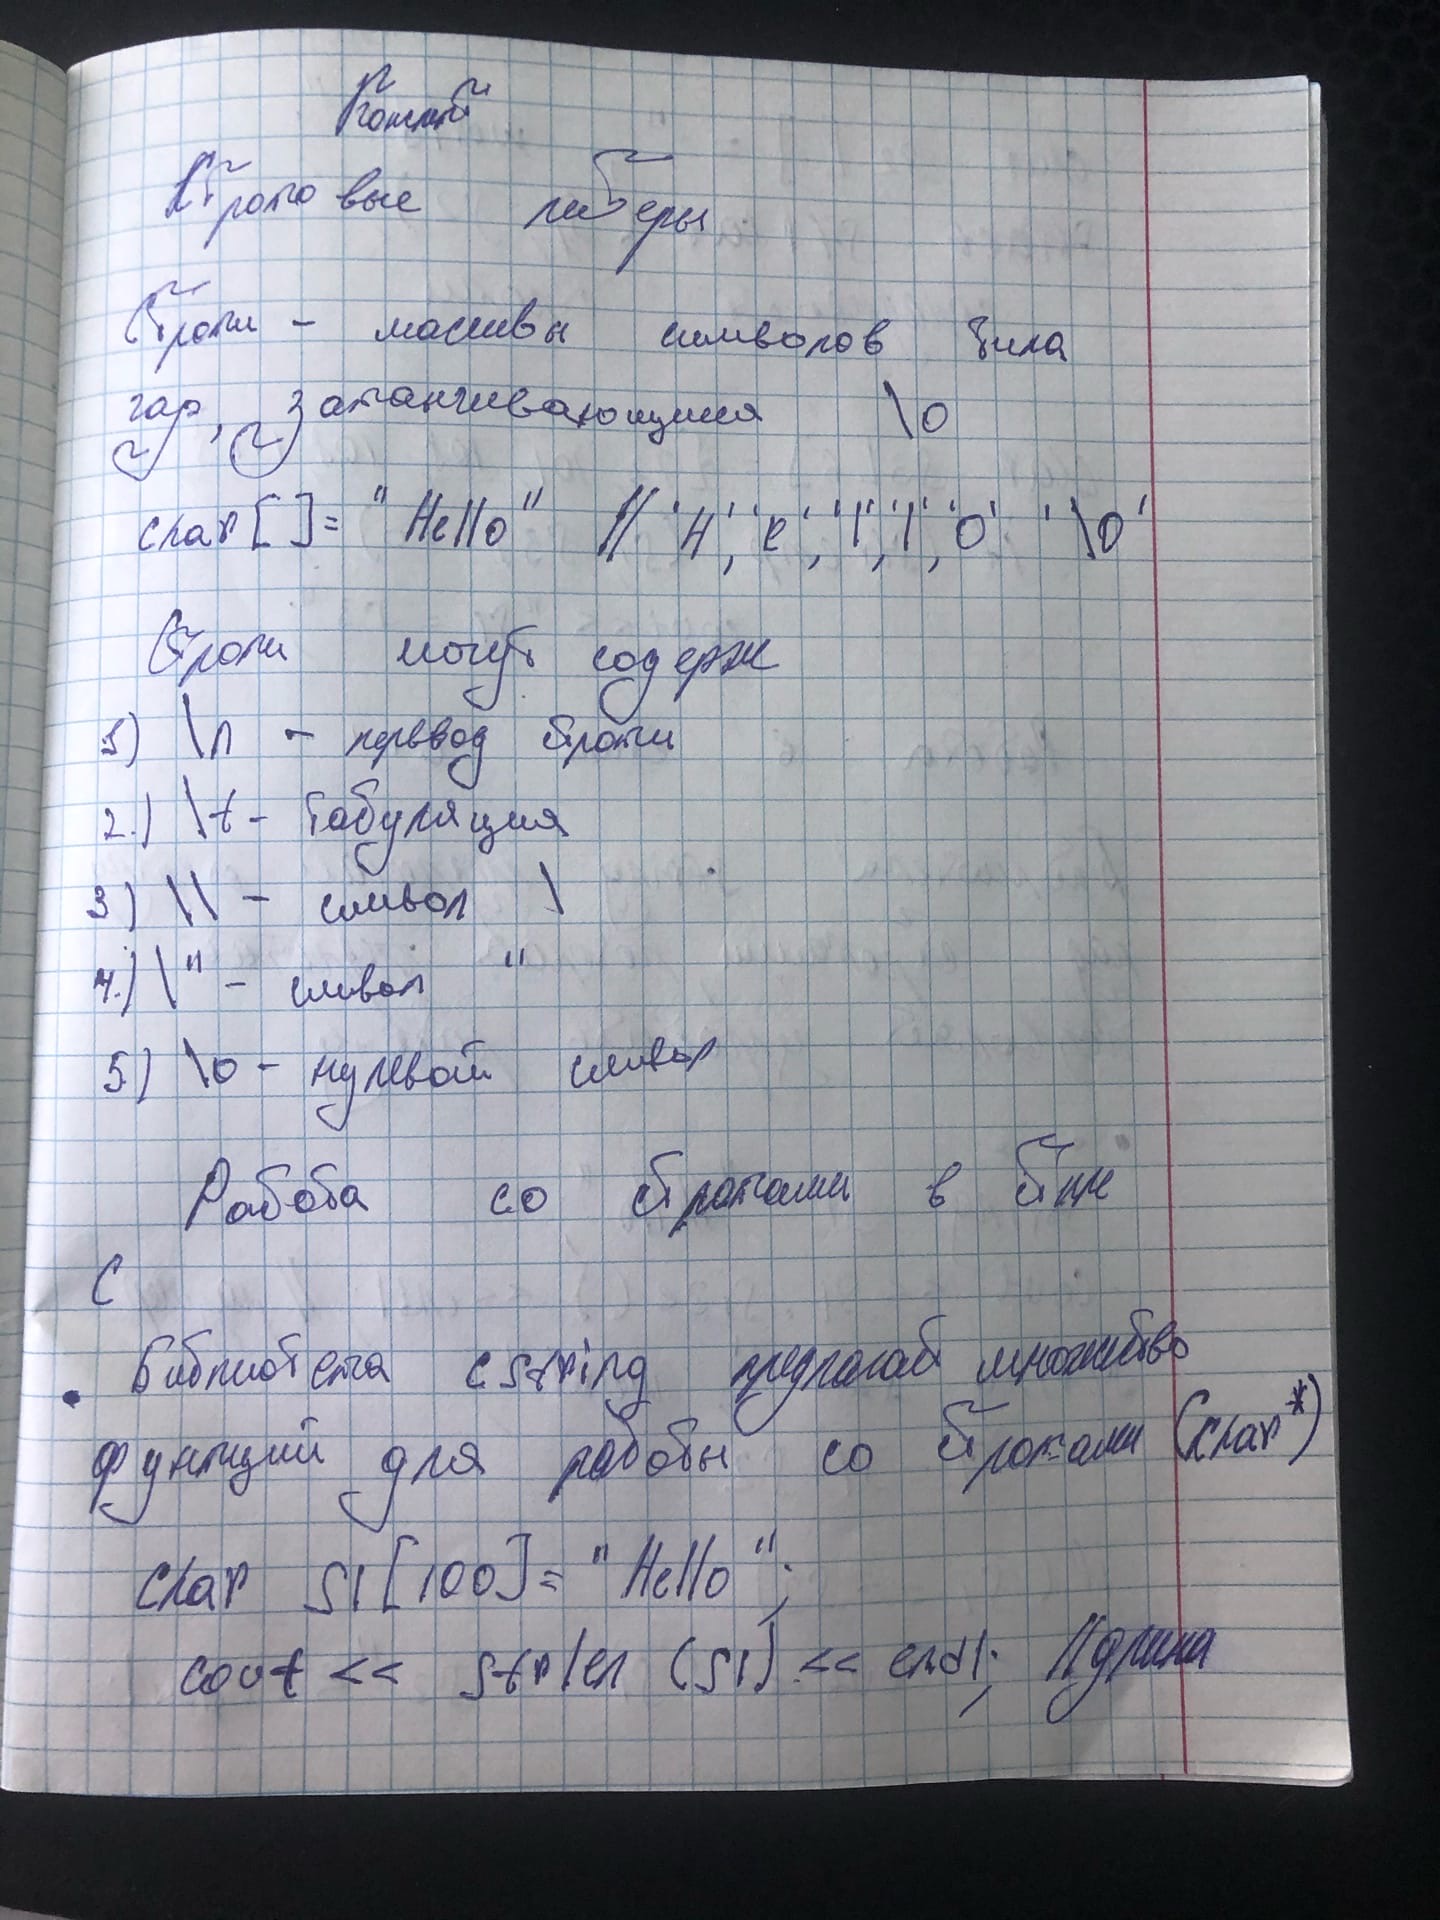 Конспект
Строковые литералы
Строки - массивы символов типа
чар, заканчивающиеся \0
char[]= "Hello" // 'H', 'e', 'l', 'l', 'o' '\0'
Строки могут содерж
1) \n - перевод строки
2.) \t - табуляция
3) \\ - символ \
4.) \" - символ "
5) \0 - нулевой символ
Работа со строками в стиле
C
• Библиотека cstring предлагает множество
функций для работы со строками (char*)
char S1[100]= "Hello";
cout << strlen (S1) << endl; // длина